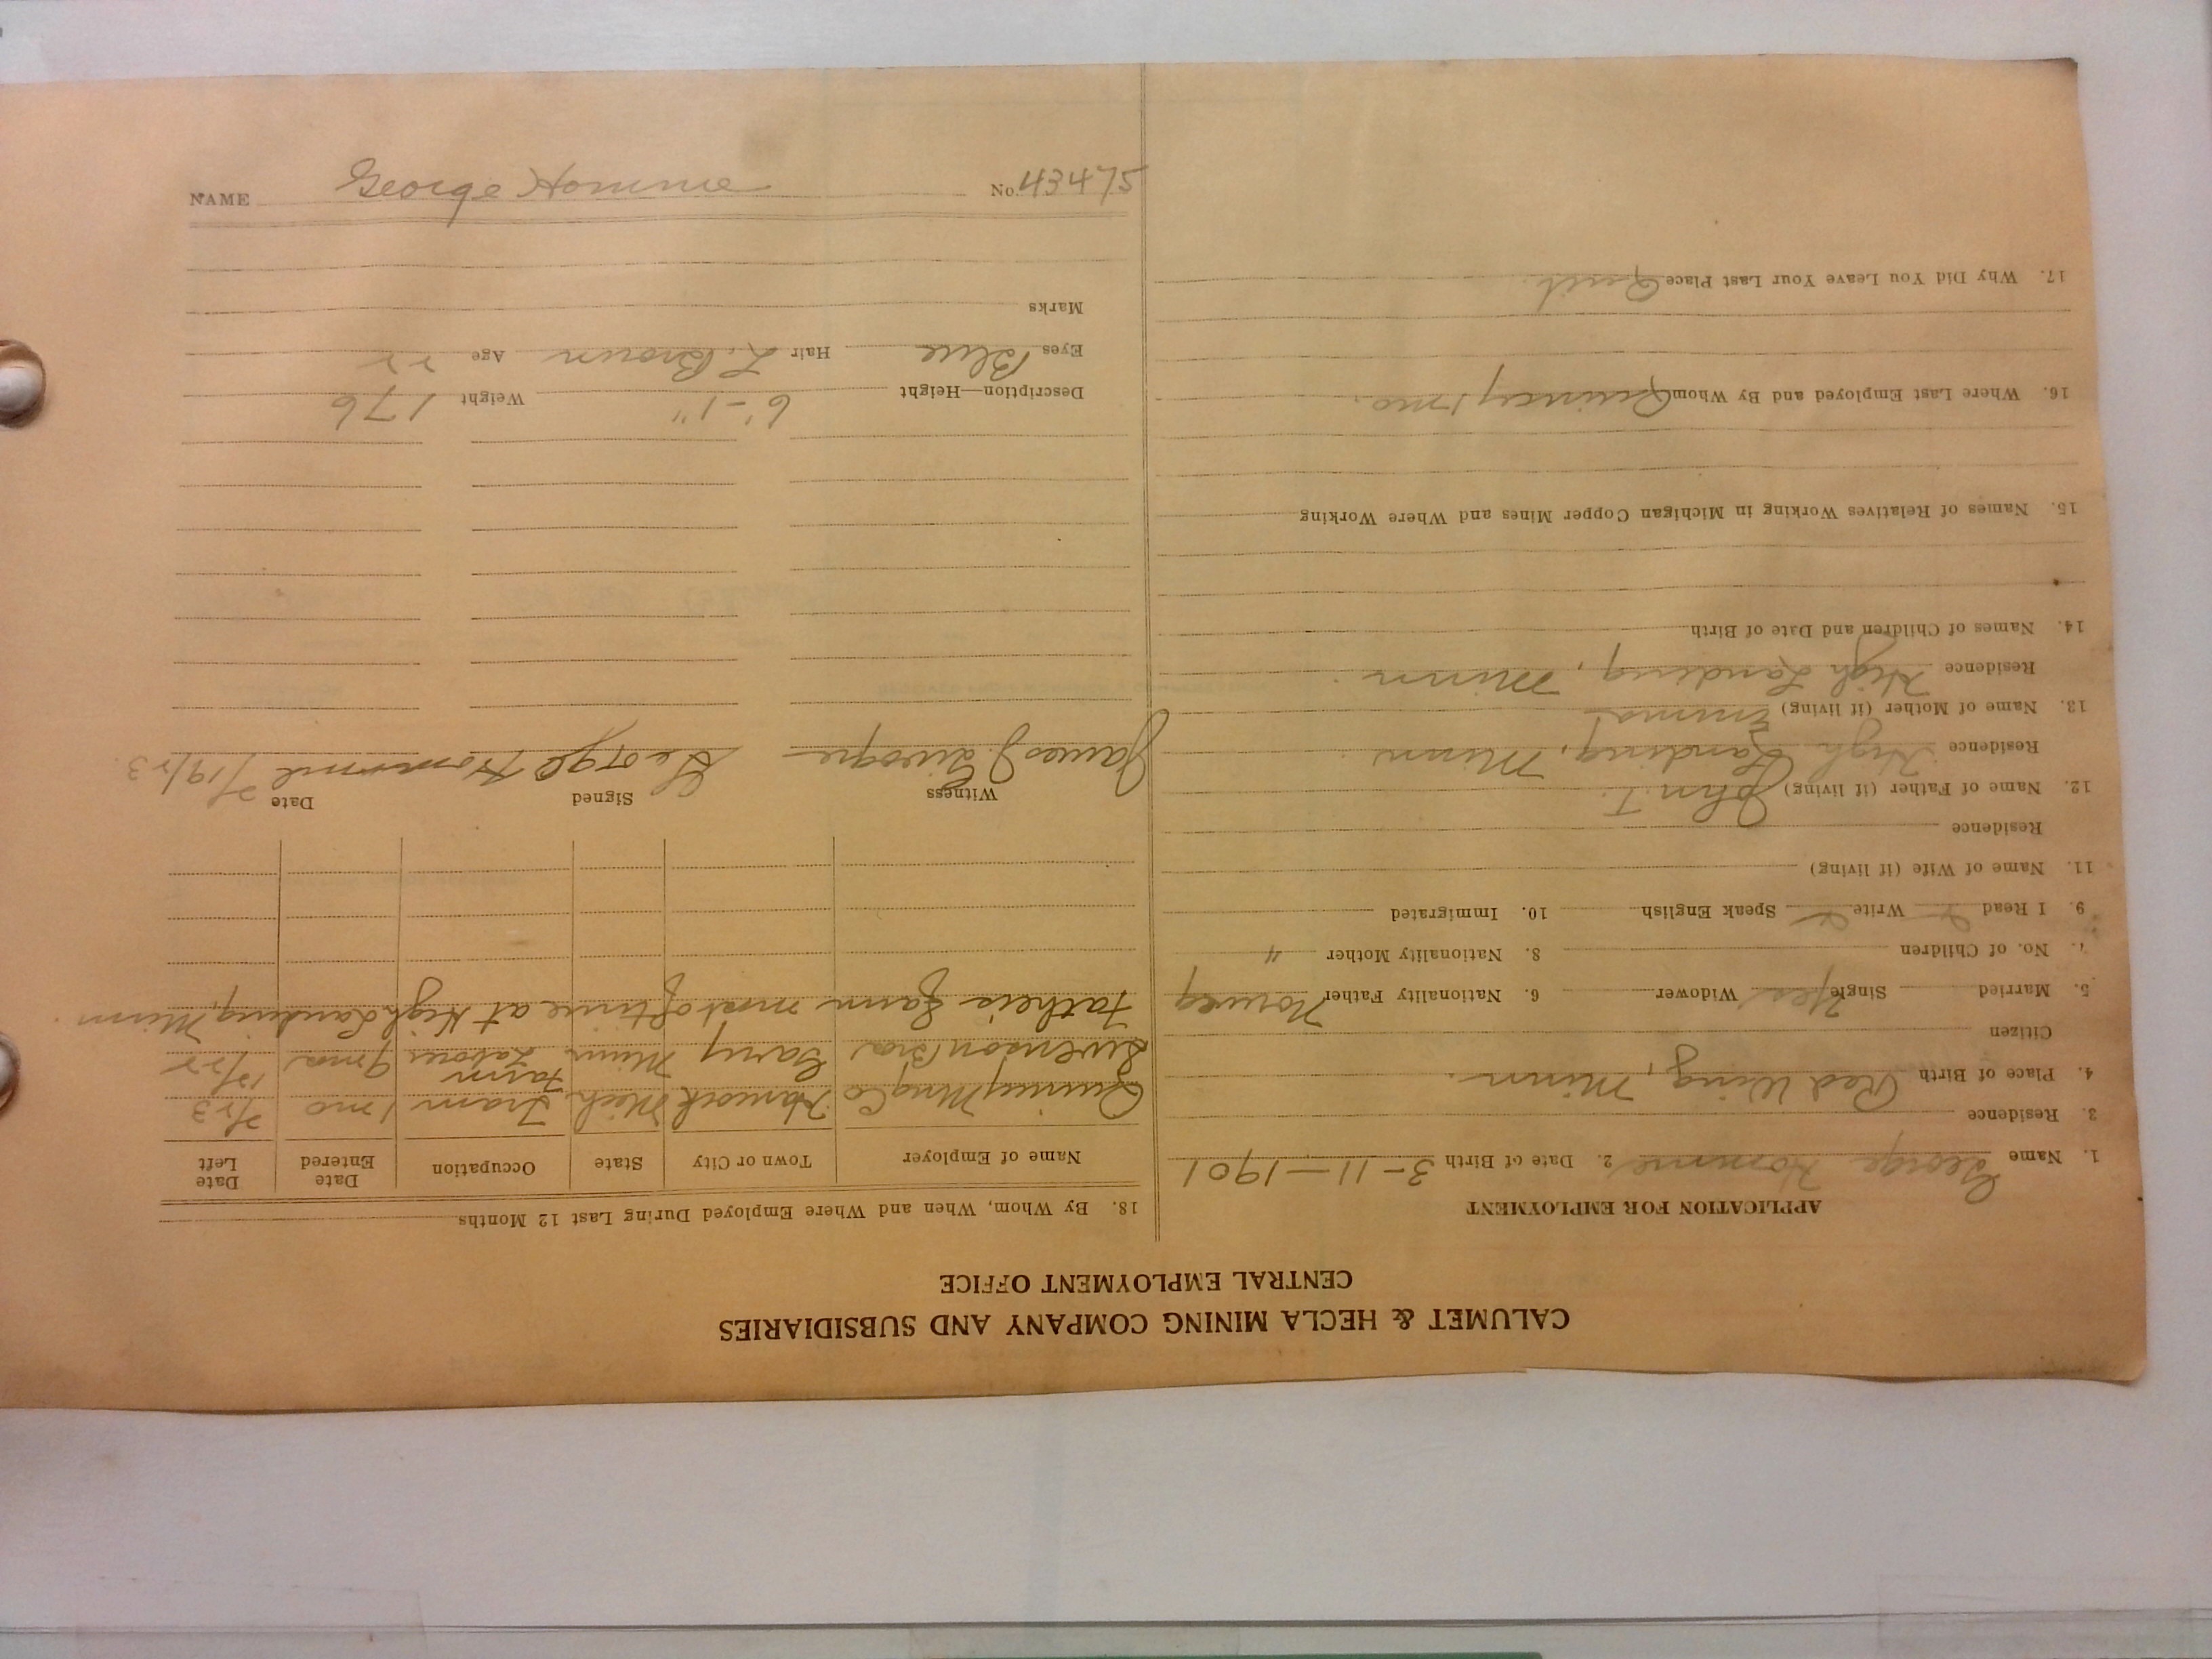 CALUMET & HECLA MINING COMPANY AND SUBSIDIARIES
CENTRAL EMPLOYMENT OFFICE
APPLICATION FOR EMPLOYMENT
1. Name George Homme 2. Date of Birth 3-11-1901
3. Residence
4. Place of Birth Red Wing, Minn.
Citizen
5. Married Single Yes Widower 6. Nationality Father Norweg
7. No. of Children 8. Nationality Mother "
9. I Read Write Speak English 10. Immigrated
11. Name of Wife (if living)
Residence
12. Name of Father (if living) John T.
Residence High Landing, Minn.
13. Name of Mother (if living) Emma
Residence High Landing, Minn.
14. Names of Children and Date of Birth
15. Names of Relatives Working in Michigan Copper Mines and Where Working
16. Where Last Employed and By Whom Quincy 1 mo.
17. Why Did You Leave Your Last Place Quit.
18. By Whom, When and Where Employed During Last 12 Months
Name of Employer Town or City State Occupation Date Entered Date Left
Quincy Mng Co Hancock Mich. Tram 1 mo 2/23
Swenson Bros Gary Minn Farm Labour 9 mo 12/22
Father's farm most of time at High Landing, Minn.
Witness Signed Date
James George Homme 2/19/23.
Description—Height 6'-1" Weight 176
Eyes Blue Hair L. Brown Age 22
Marks
NAME George Homme No. 43475